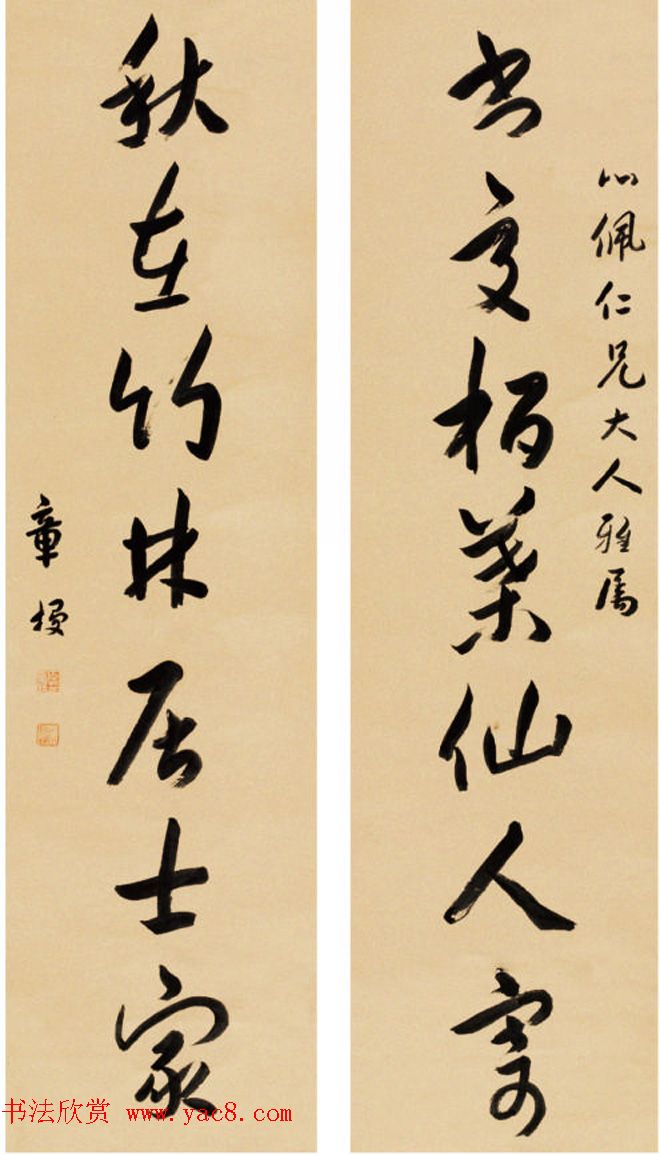 心佩仁兄大人雅属
書受柏葉仙人寄
秋在竹林居士家
章梫
书法欣赏 www.yac8.com